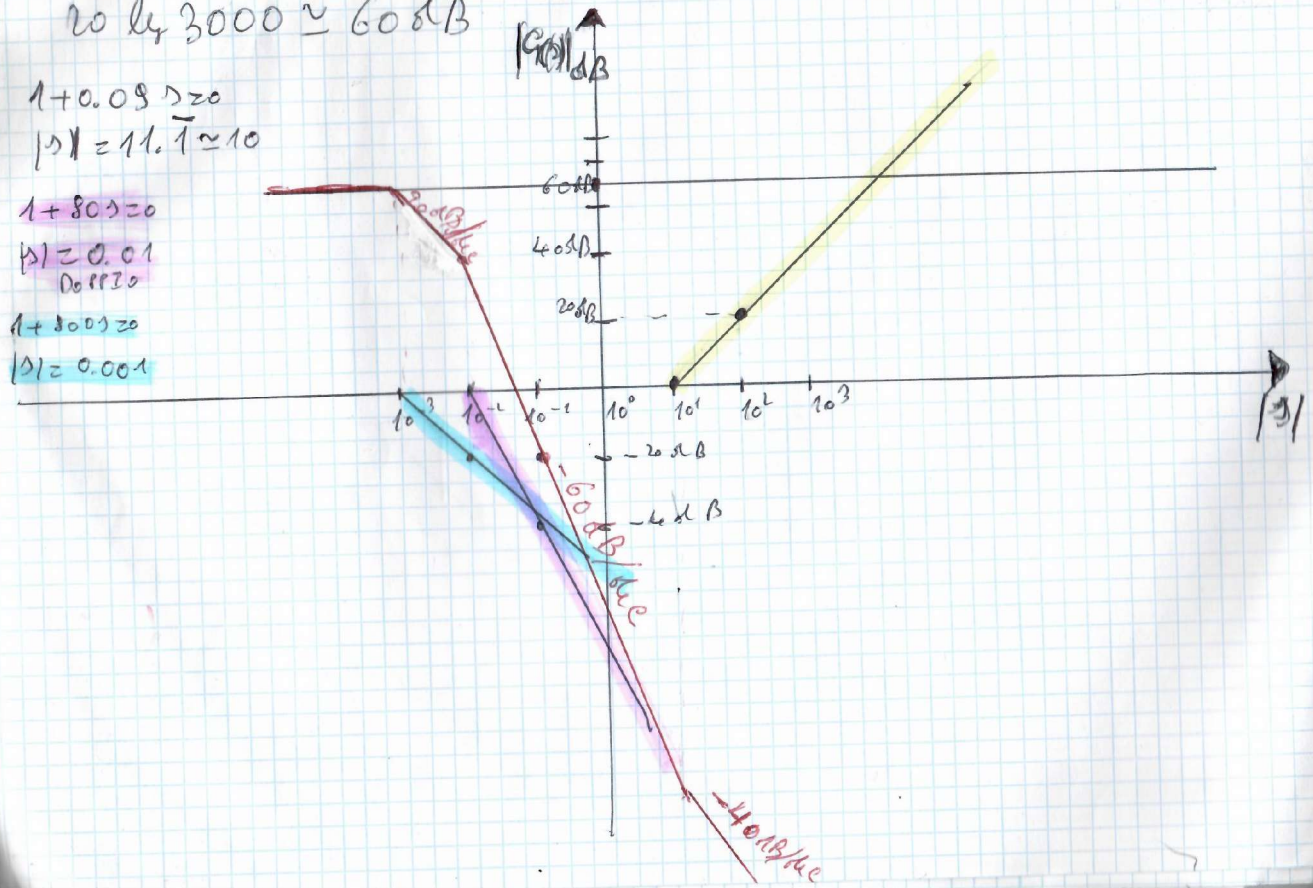 20 lg 3000 ≃ 60 dB
|G(s)|dB
1+0.09 s=0
|s| = 11.1̅ ≃ 10
1+80s=0
|s| = 0.01
DOPPIO
1+800s=0
|s| = 0.001
60dB
40dB
20dB
-20dB/dec
10⁻³
10⁻²
10⁻¹
10⁰
10¹
10²
10³
|s|
-20 dB
-60 dB/dec
-40dB/dec